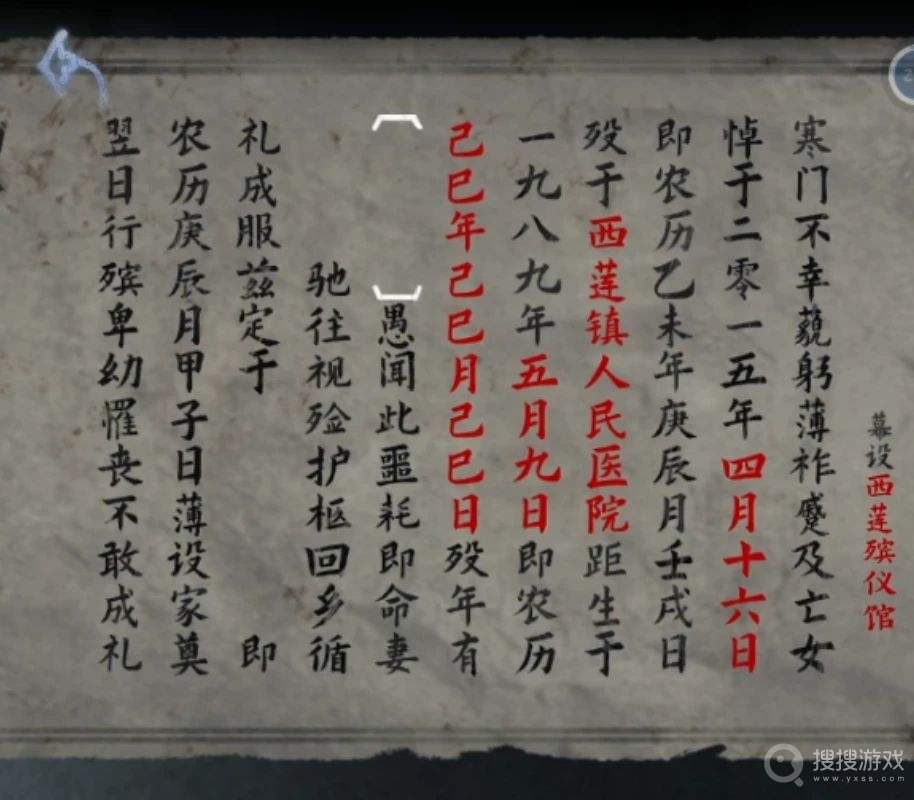 幕设西莲殡仪馆
寒门不幸藐躬薄祚蹙及亡女
悼于二零一五年四月十六日
即农历乙未年庚辰月壬戌日
殁于西莲镇人民医院距生于
一九八九年五月九日即农历
己巳年己巳月己巳日殁年有
愚闻此噩耗即命妻
驰往视殓护柩回乡循
礼成服兹定于 即
农历庚辰月甲子日薄设家奠
翌日行殡卑幼罹丧不敢成礼
搜搜游戏
www.yxss.com